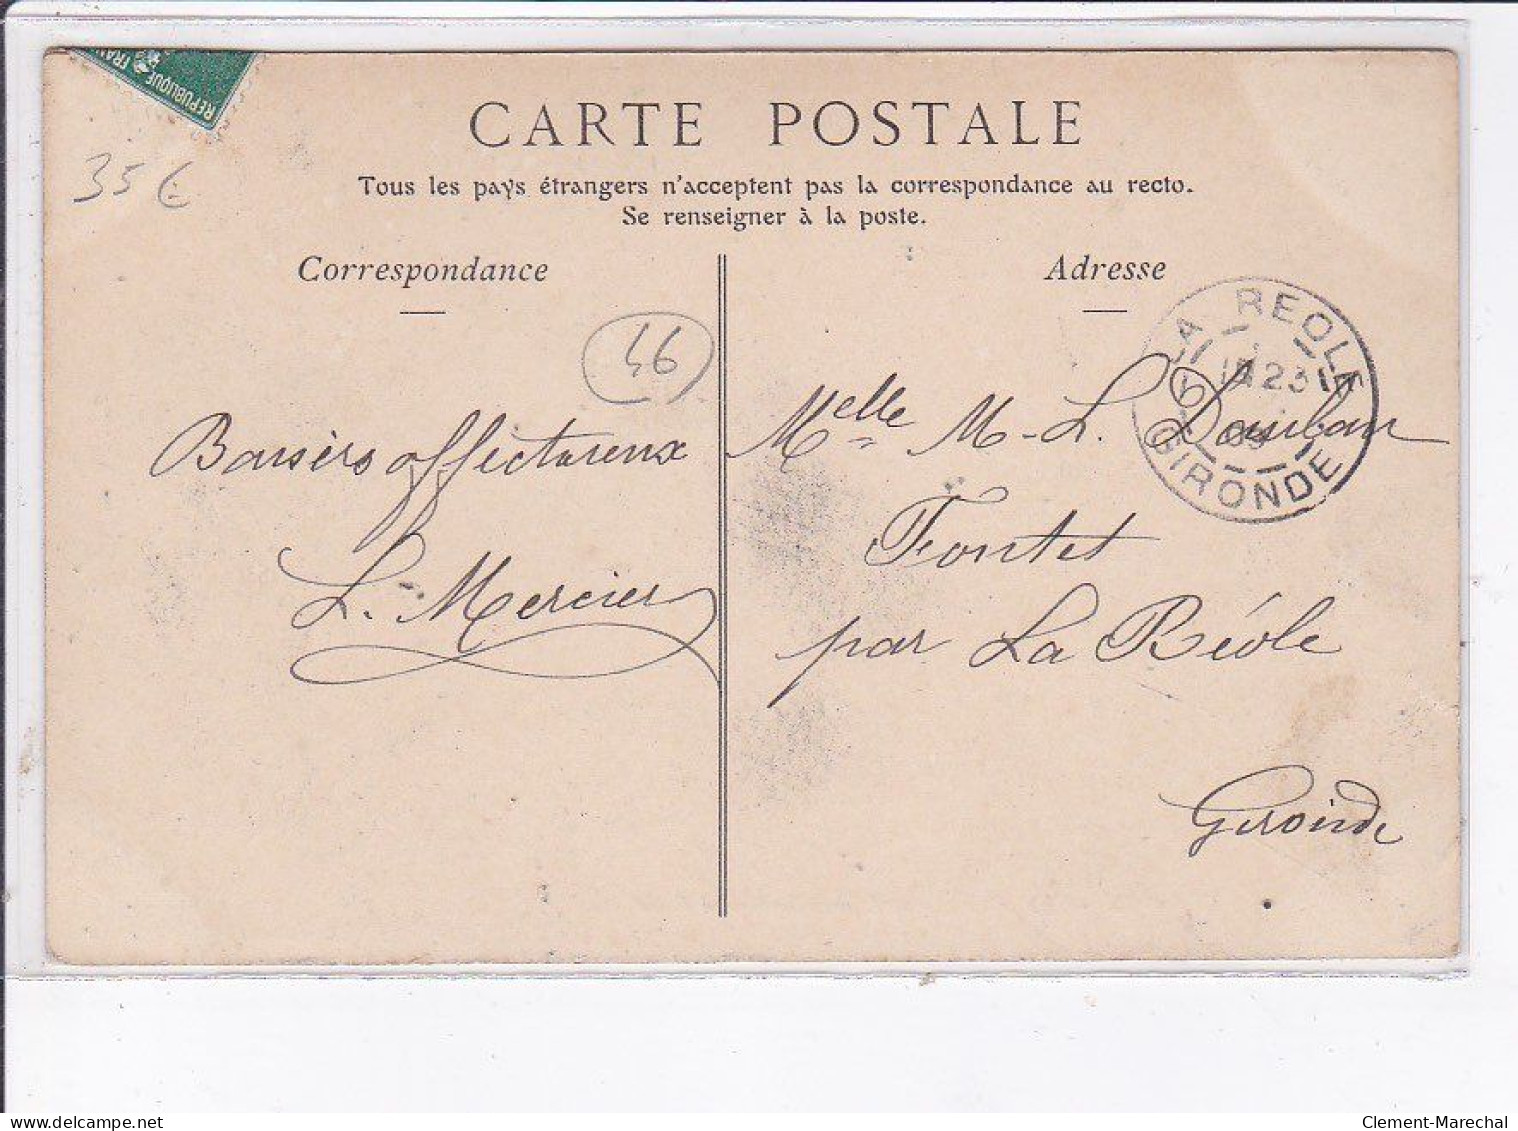 REPUBLIQUE FRAN
35 €
CARTE POSTALE
Tous les pays étrangers n'acceptent pas la correspondance au recto.
Se renseigner à la poste.
Correspondance
Adresse
46
LA REOLE
23
09
GIRONDE
Baisers affectueux
L. Mercier
Melle M-L.
Fontet
par La Réole
Gironde
delcampe.net
Clement-Marechal